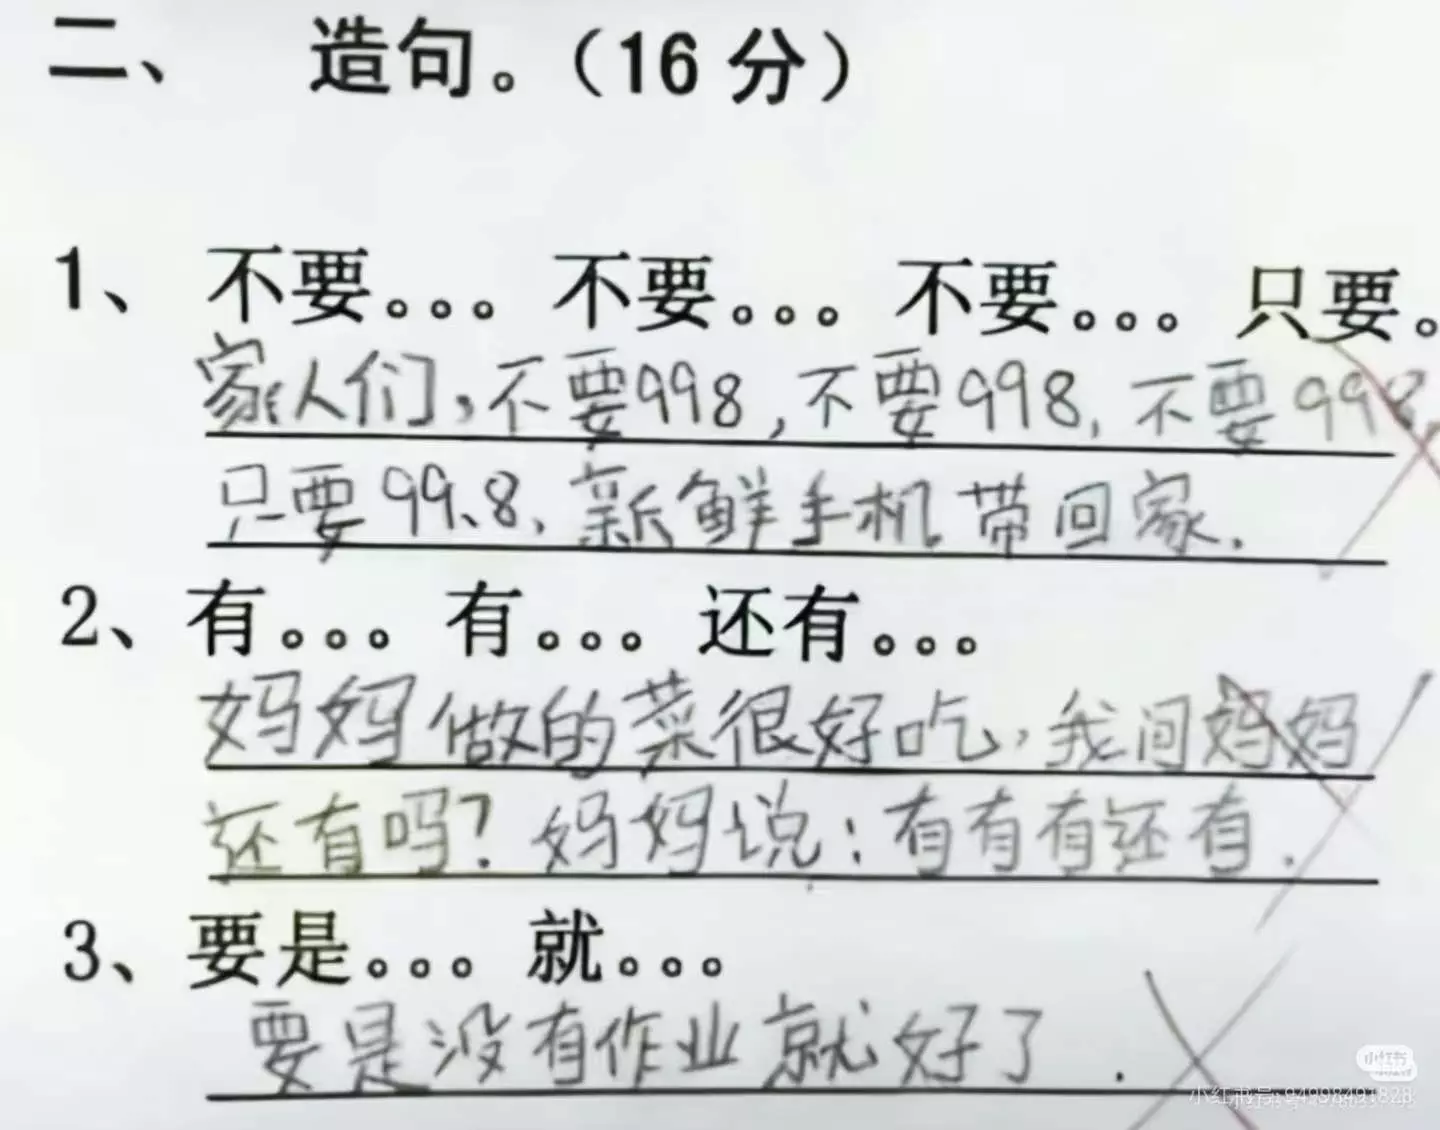 二、 造句。（16 分）
1、 不要。。。不要。。。不要。。。只要。
家人们，不要998，不要998，不要998，
只要99.8，新鲜手机带回家.
2、有。。。有。。。还有。。。
妈妈做的菜很好吃，我问妈妈
还有吗？妈妈说：有有有还有.
3、要是。。。就。。。
要是没有作业就好了.
小红书